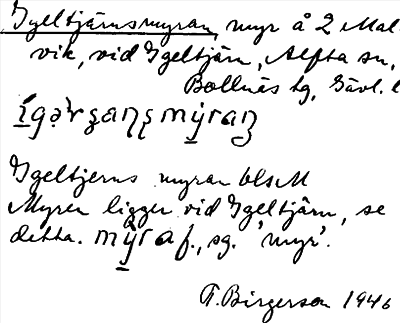 Igeltjärnsmyran, myr å 2 Mal-
vik, vid Igeltjärn, Alfta sn,
Bollnäs tg, Gävl. l
Igeltjerns myran blsM
Myren ligger vid Igeltjärn, se
detta. mỳra f., sg. 'myr'.
T. Birgerson 1946